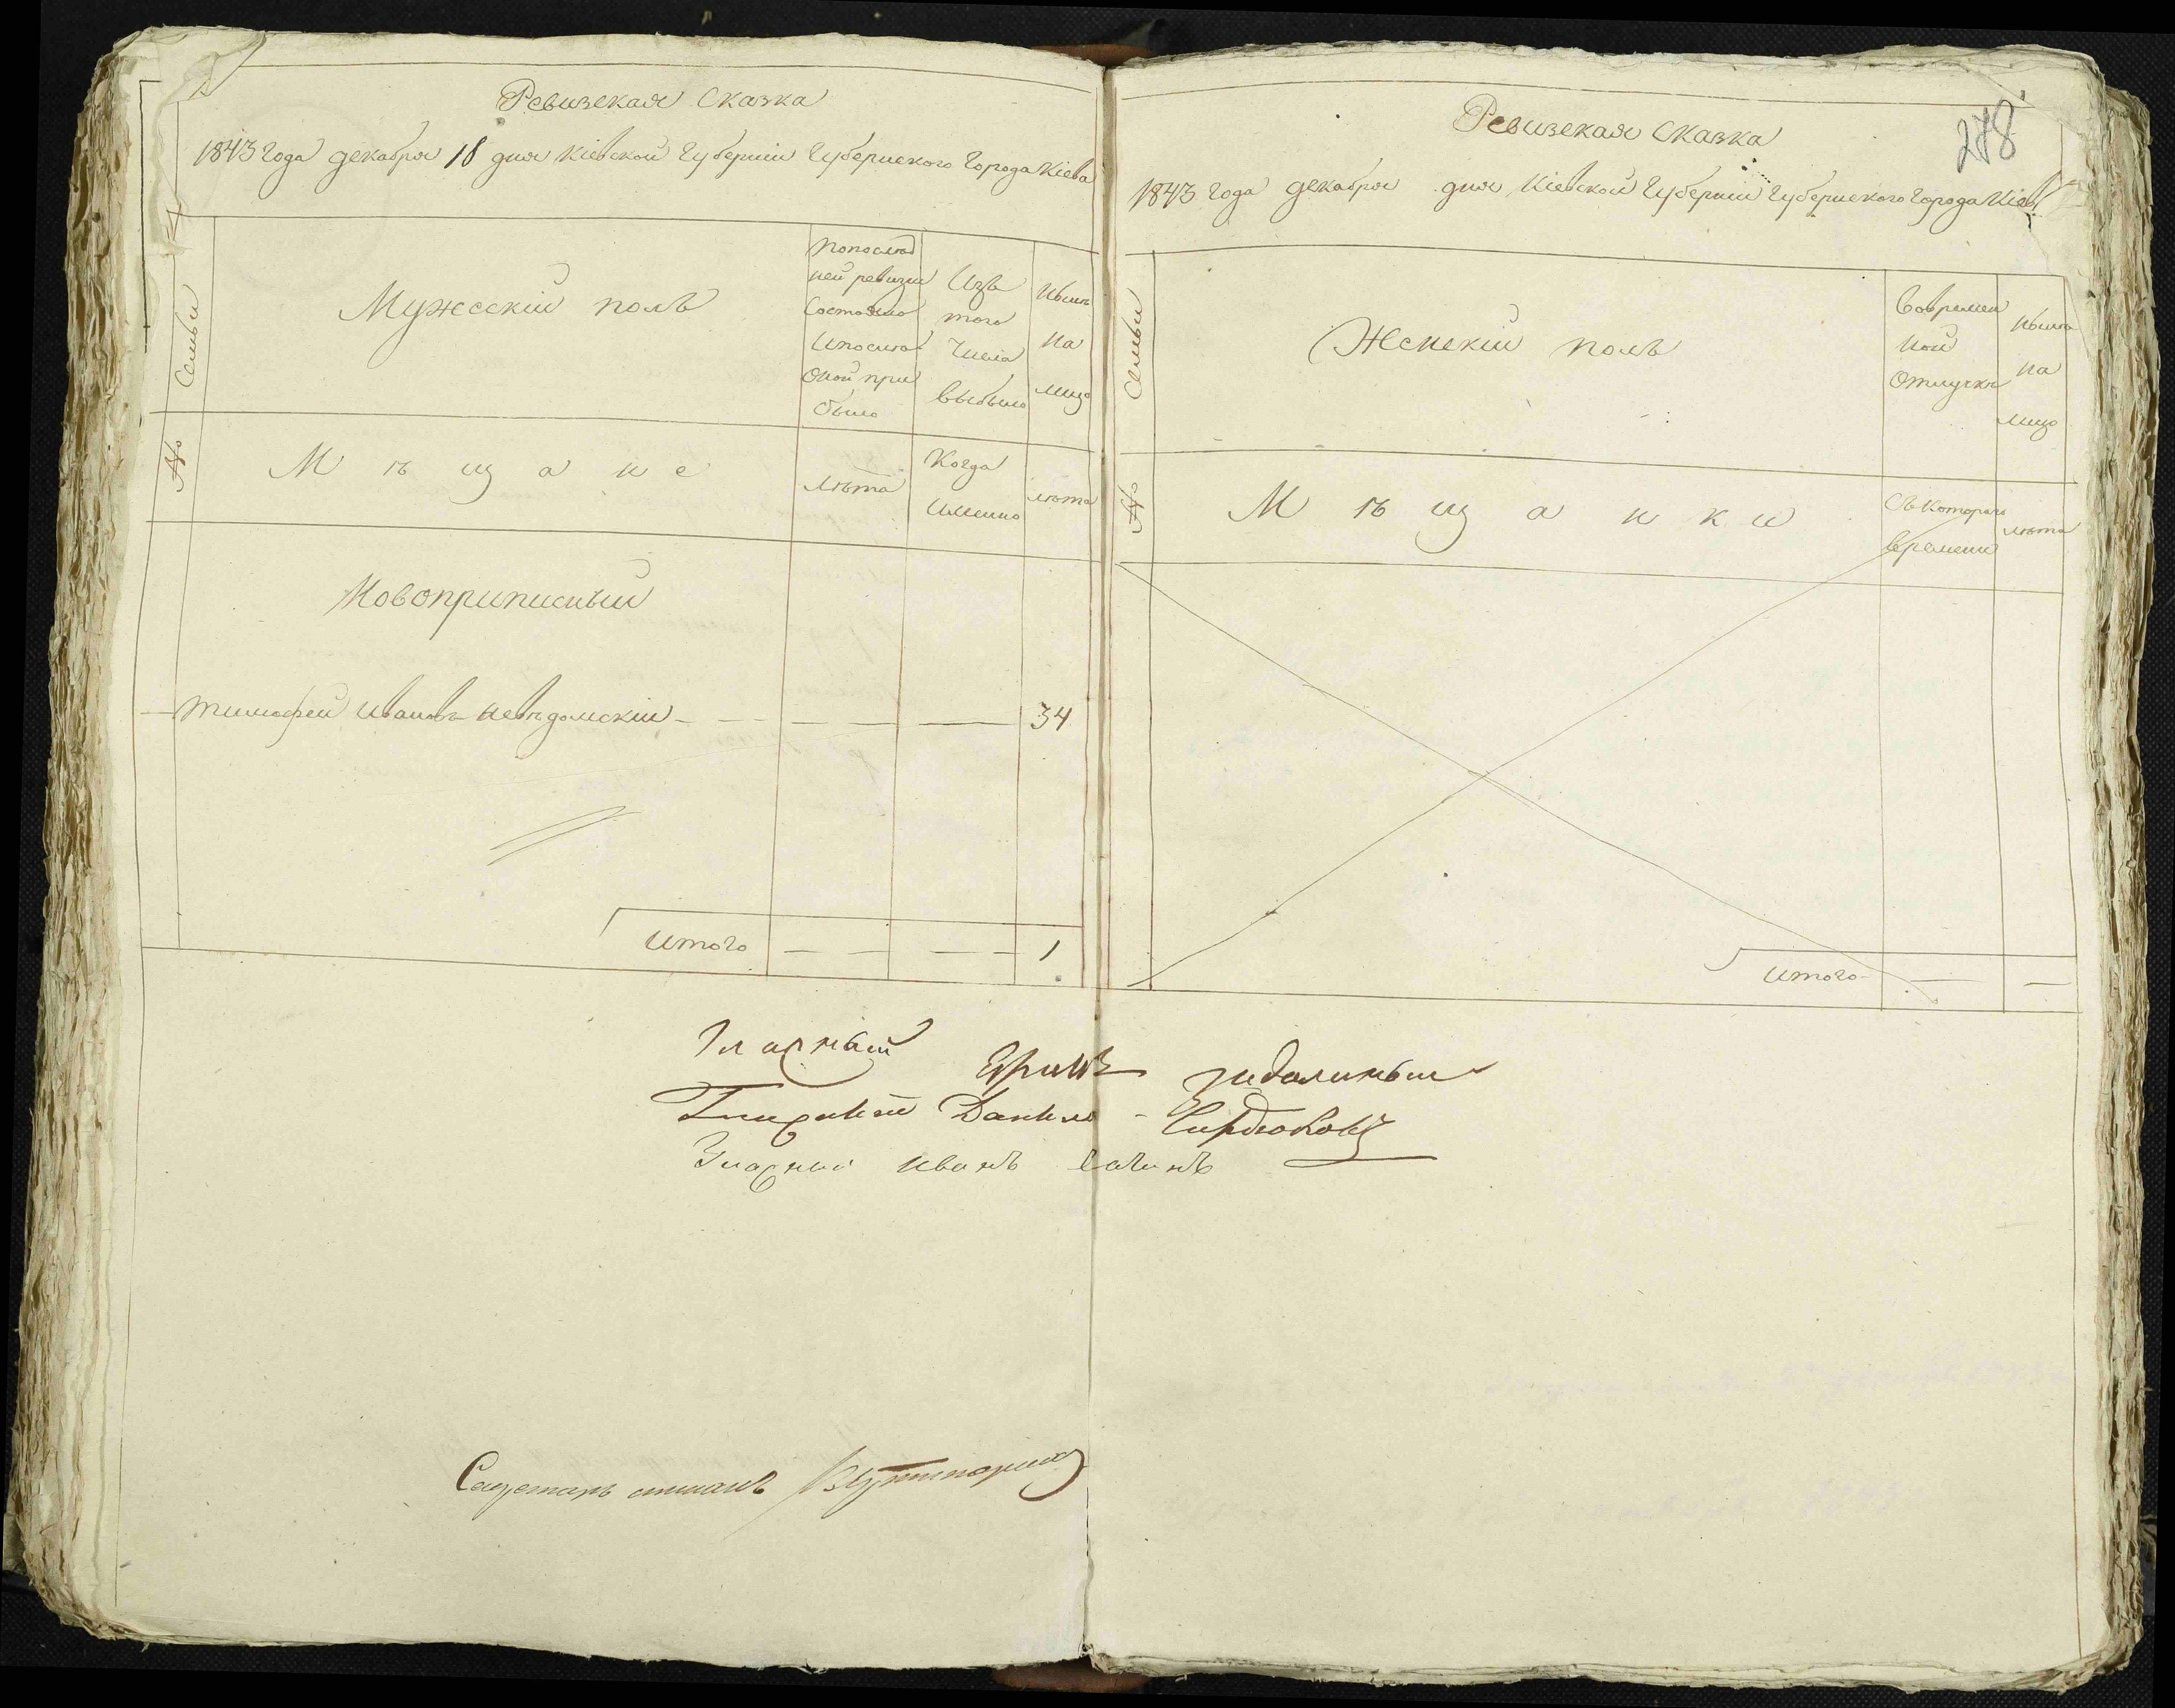 Ревизская Сказка
1843 года декабря 18 дня Кіевской Губерніи Губернского Города Кіева
№ Семьи
Мужескій полъ
По послѣд
ней ревизіи
Состояло
и послѣ
оной при
было
Изъ
того
Числа
выбыло
Нынѣ
на
лицо
Мѣщане
Лѣта
Когда
именно
лѣта
Новоприписный
Тимофей Ивановъ Невѣдомскій 34
Итого — — 1
278
Ревизская Сказка
1843 года декабря дня Кіевской Губерніи Губернского Города Кіева
№ Семьи
Женскій полъ
Во времен
ной
Отлучкѣ
Нынѣ
на
лицо
Мѣщанки
Съ котораго
времени
лѣта
Итого — —
Гласный
Гласный Данило
Гласный Иванъ
Секретарь